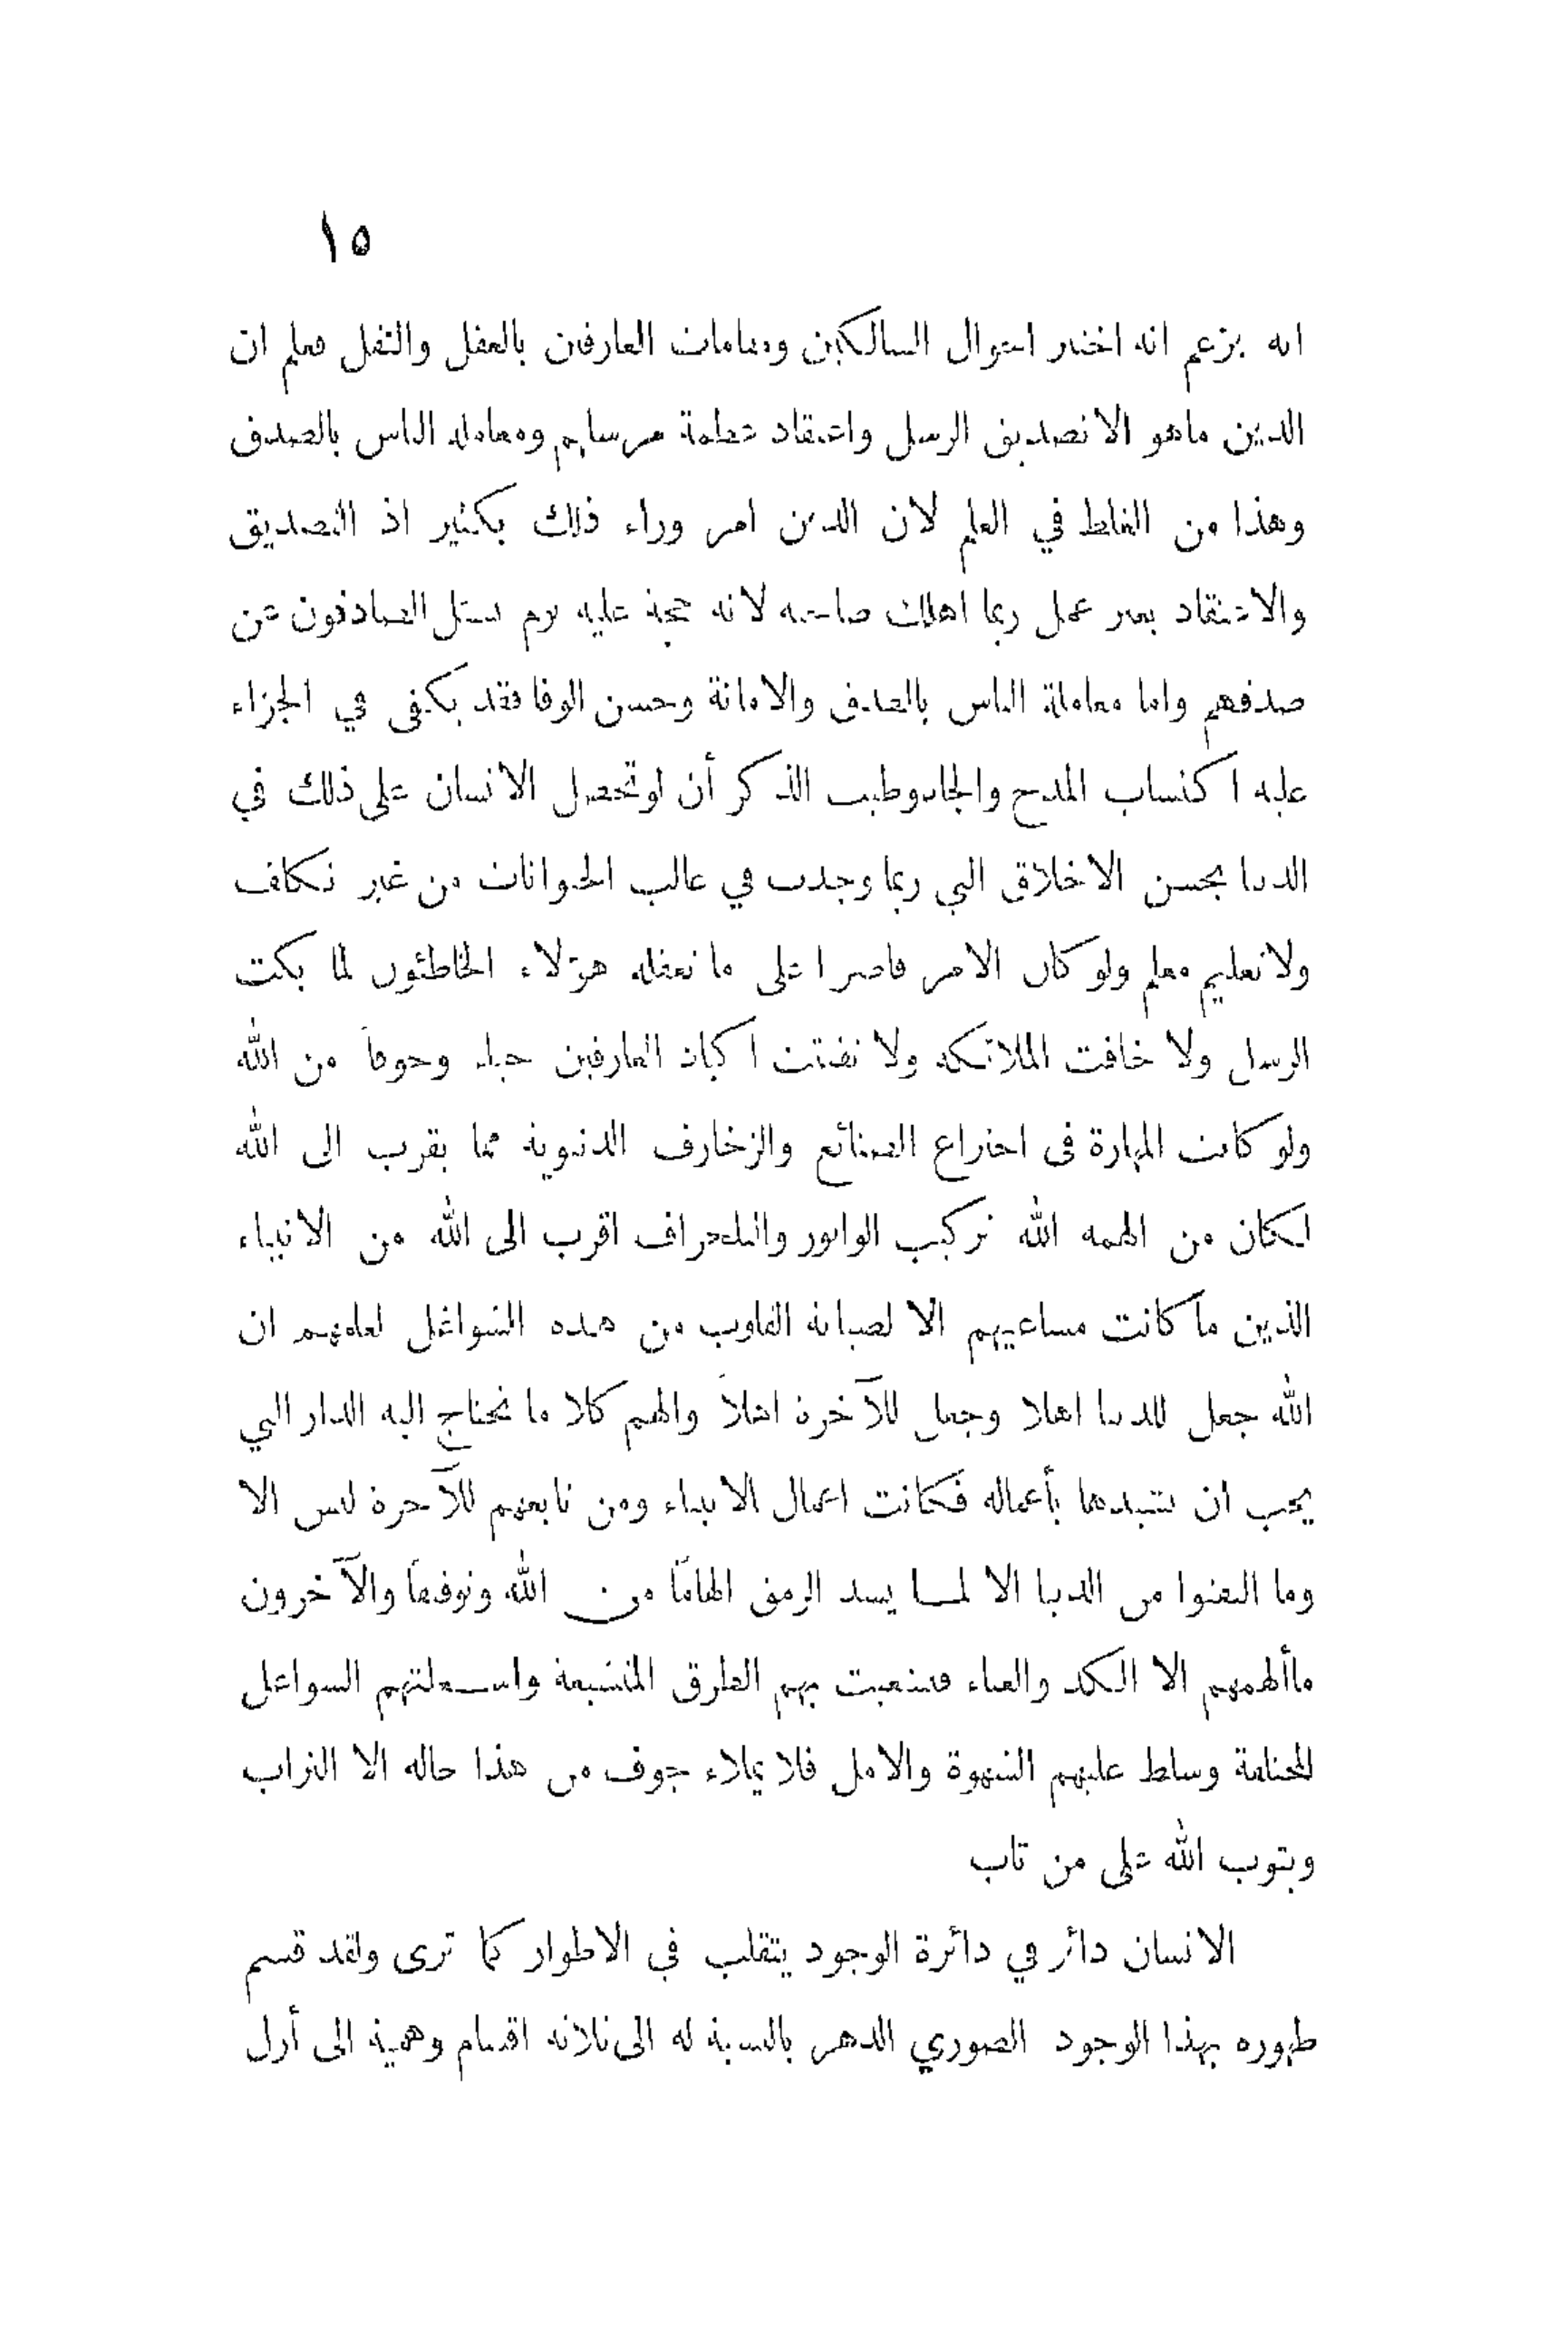 ١٥
انه يزعم انه اختبر احوال السالكين ومقامات العارفين بالعقل والنقل فعلم ان
الدين ماهو الا تصديق الرسل واعتقاد عظمة مرسلهم ومعاملة الناس بالصدق
وهذا من الغلط في العلم لان الدين امر وراء ذلك بكثير اذ التصديق
والاعتقاد بغير عمل ربما اهلك صاحبه لانه حجة عليه يوم يسئل الصادقون عن
صدقهم واما معاملة الناس بالصدق والامانة وحسن الوفا فقد يكفى في الجزاء
عليه اكتساب المدح والجاه وطيب الذكر أن لو تحصل الانسان على ذلك في
الدنيا بحسن الاخلاق التي ربما وجدت في غالب الحيوانات من غير تكلف
ولا تعليم معلم ولو كان الامر قاصرا على ما تعقله هؤلاء الخاطئون لما بكت
الرسل ولا خافت الملائكة ولا تفتتت اكباد العارفين حياء وخوفاً من الله
ولو كانت المهارة فى اختراع الصنائع والزخارف الدنيوية مما يقرب الى الله
لكان من الهمه الله تركيب الوابور والتلغراف اقرب الى الله من الانبياء
الذين ما كانت مساعيهم الا لصيانة القلوب من هذه الشواغل لعلمهم ان
الله جعل للدنيا اهلا وجعل للآخرة اهلاً والهم كلا ما تحتاج اليه الدار التي
يجب ان يشيدها بأعماله فكانت اعمال الانبياء ومن تابعهم للآخرة ليس الا
وما التفتوا من الدنيا الا لما يسد الرمق الهاماً من الله وتوفيقاً والآخرون
ماألهمهم الا الكد والعناء فتشعبت بهم الطرق المتشعبة واشتغلتهم الشواغل
المختلفة وسلط عليهم الشهوة والامل فلا يملاء جوف من هذا حاله الا التراب
ويتوب الله على من تاب
الانسان دائر في دائرة الوجود يتقلب في الاطوار كما ترى ولقد قسم
ظهوره بهذا الوجود الصوري الدهر بالنسبة له الى ثلاثة اقسام وهمية الى أزل